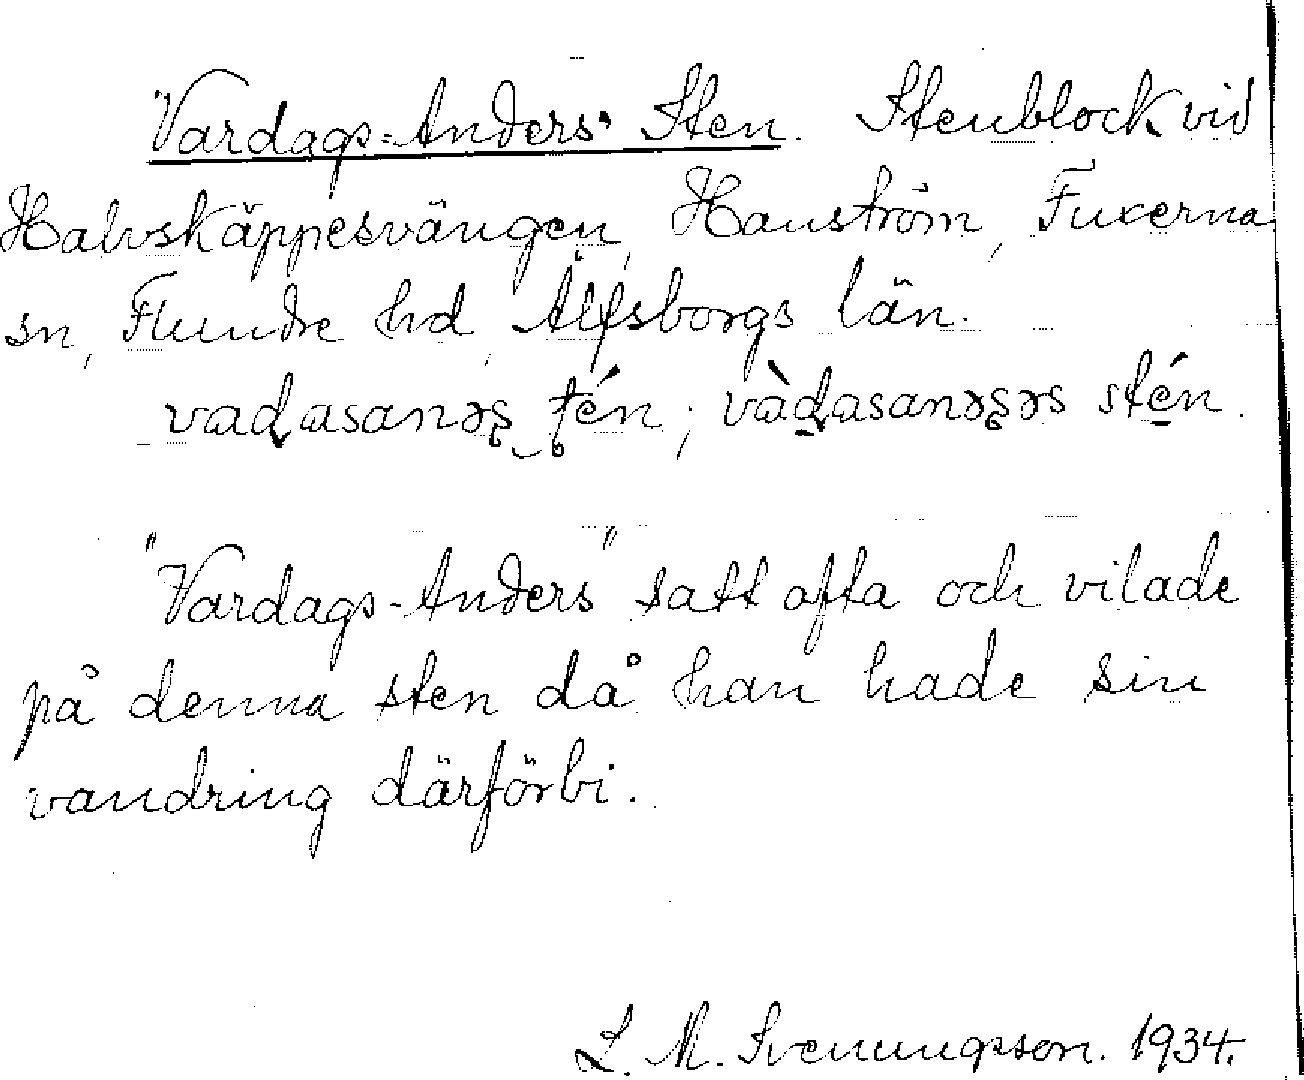 Vardags-Anders' Sten. Stenblock vid
Halvskäppesvängen, Hanström, Fuxerna
sn, Flundre hd, Älfsborgs län.
vaɖasanəʂ ʈén; vàɖasanəʂəs stén.
"Vardags-Anders" satt ofta och vilade
på denna sten då han hade sin
vandring därförbi.
L. M. Svenungsson. 1934.